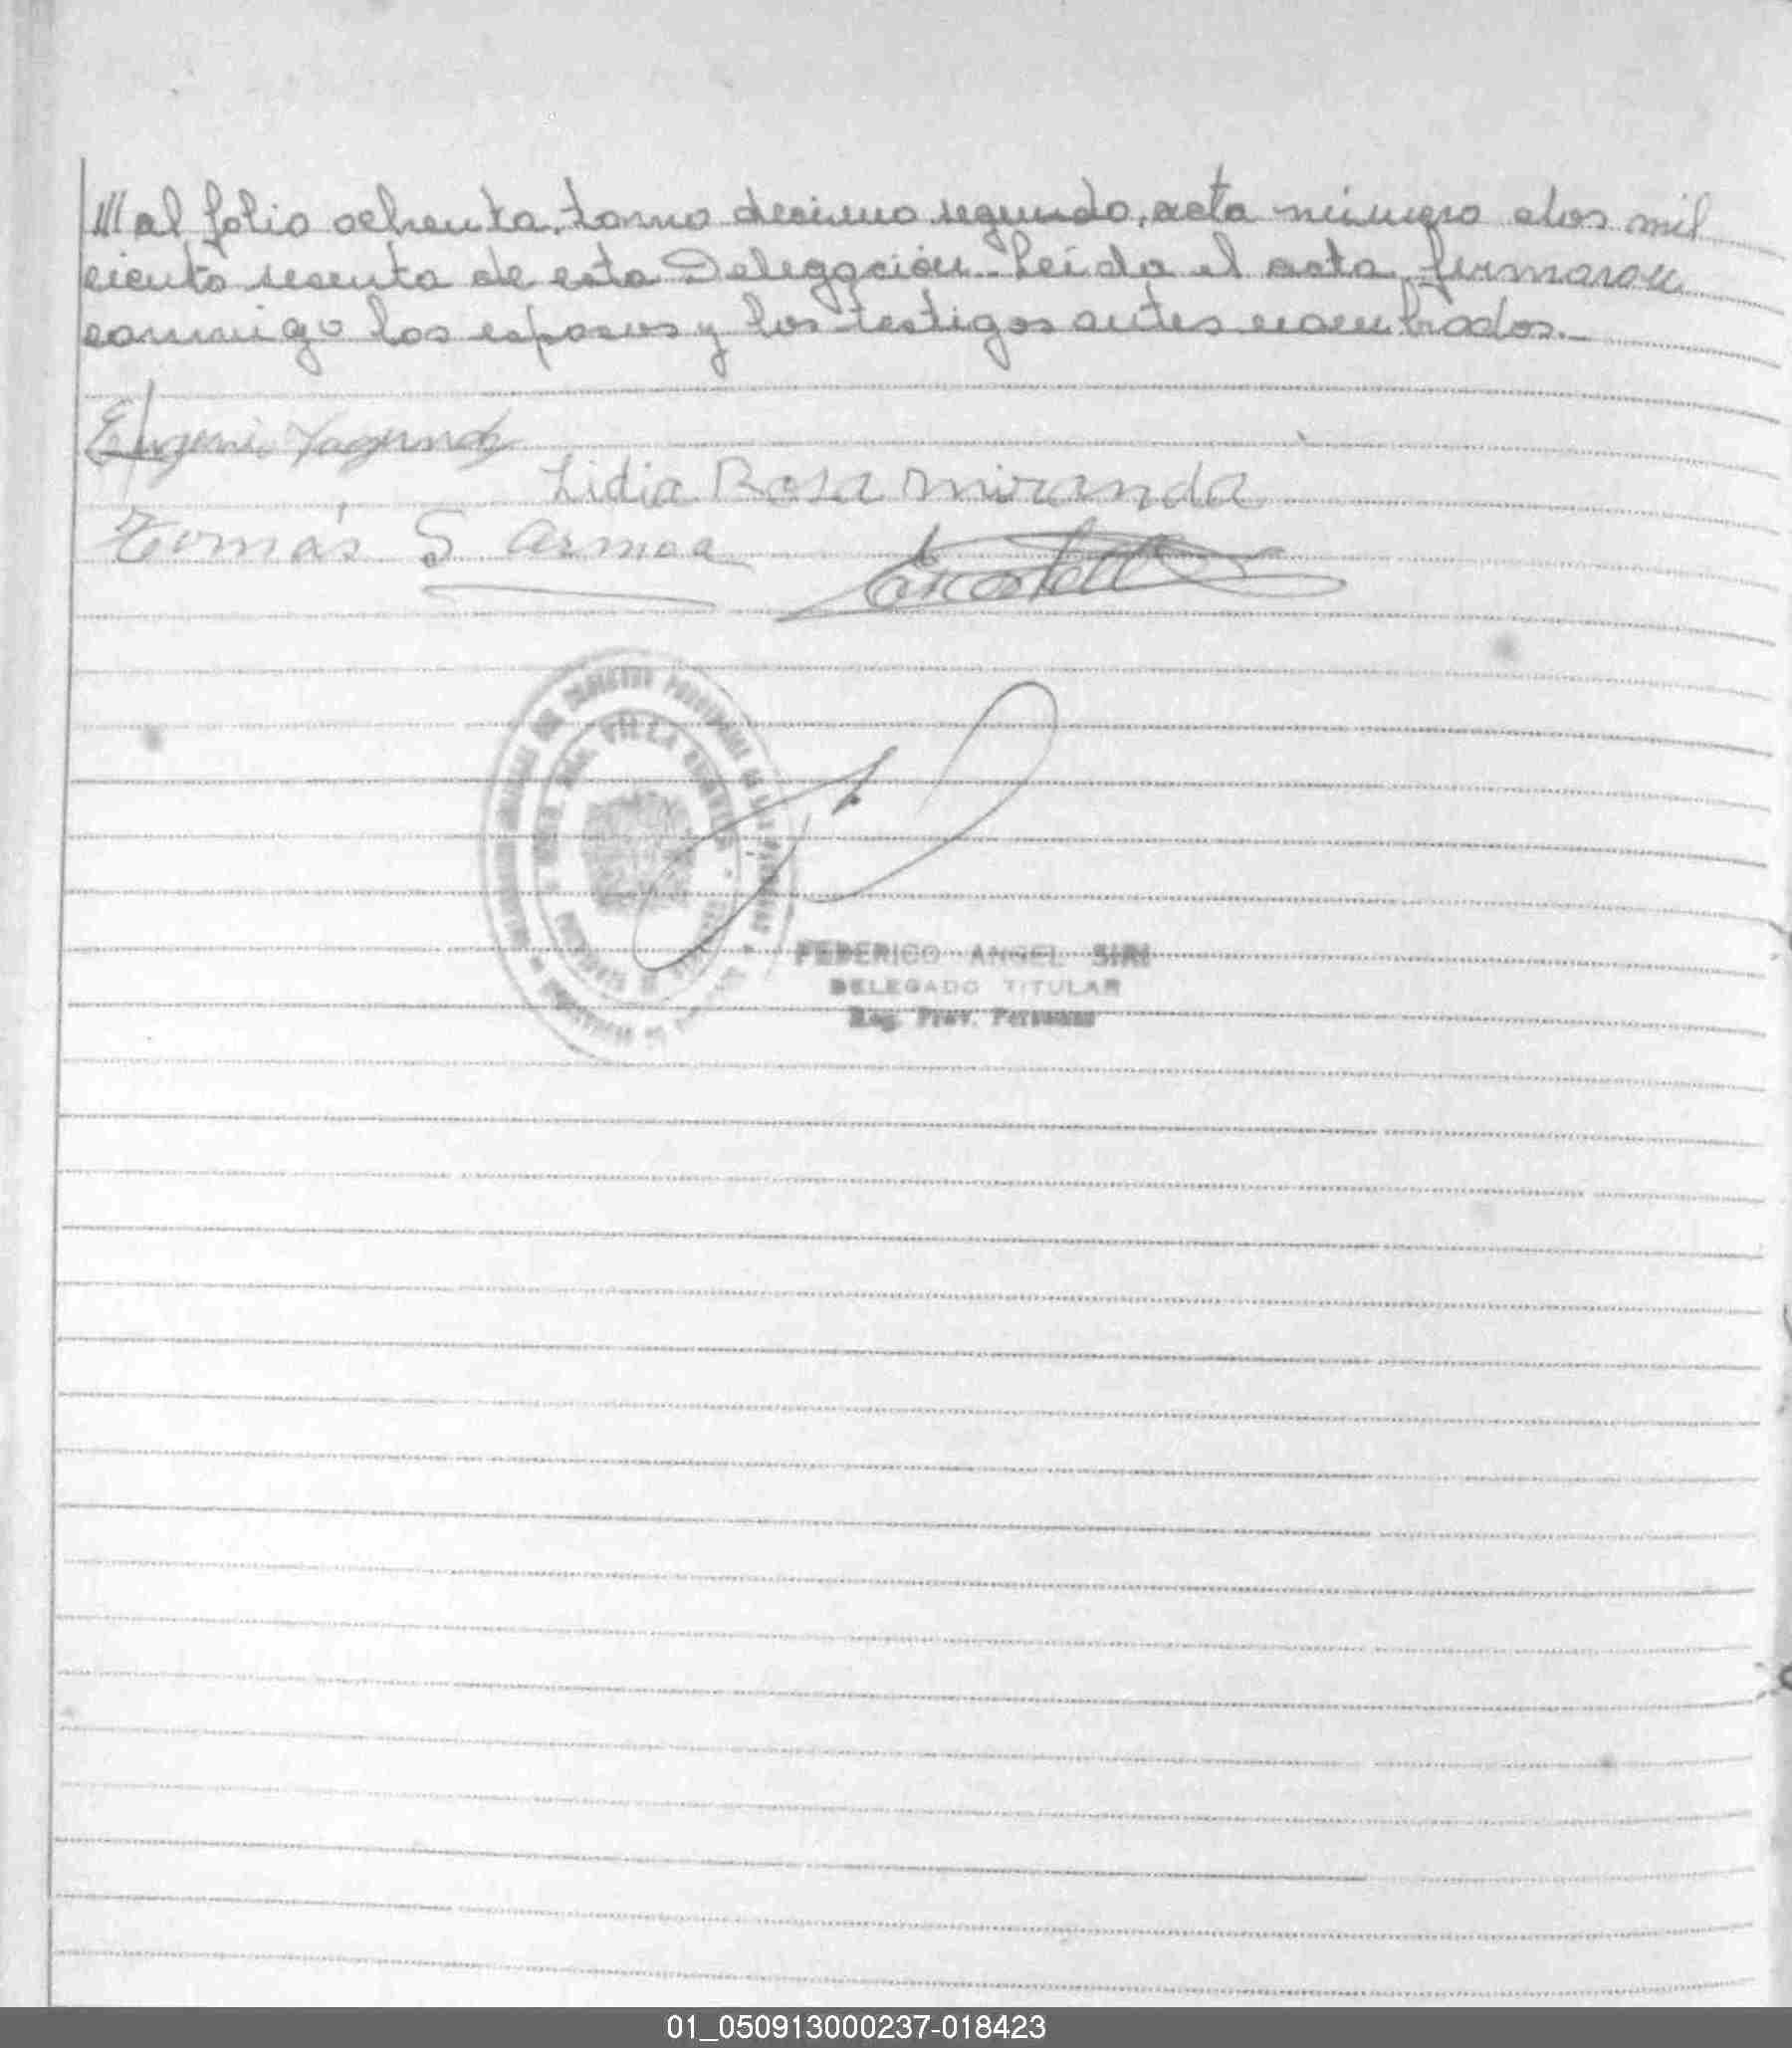 /// al folio ochenta, tomo decimo segundo, acta número dos mil
ciento sesenta de esta Delegación. Leída el acta, firmaron
conmigo los esposos y los testigos antes nombrados.-
Lidia Rosa Miranda
Tomás S Armoa
VILLA
FEDERICO ANGEL SIRI
DELEGADO TITULAR
Reg. Prov. Personas
01_050913000237-018423